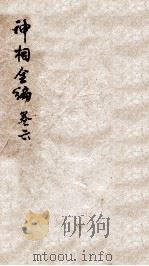 神相全編 卷六
研狗
mtoou.info